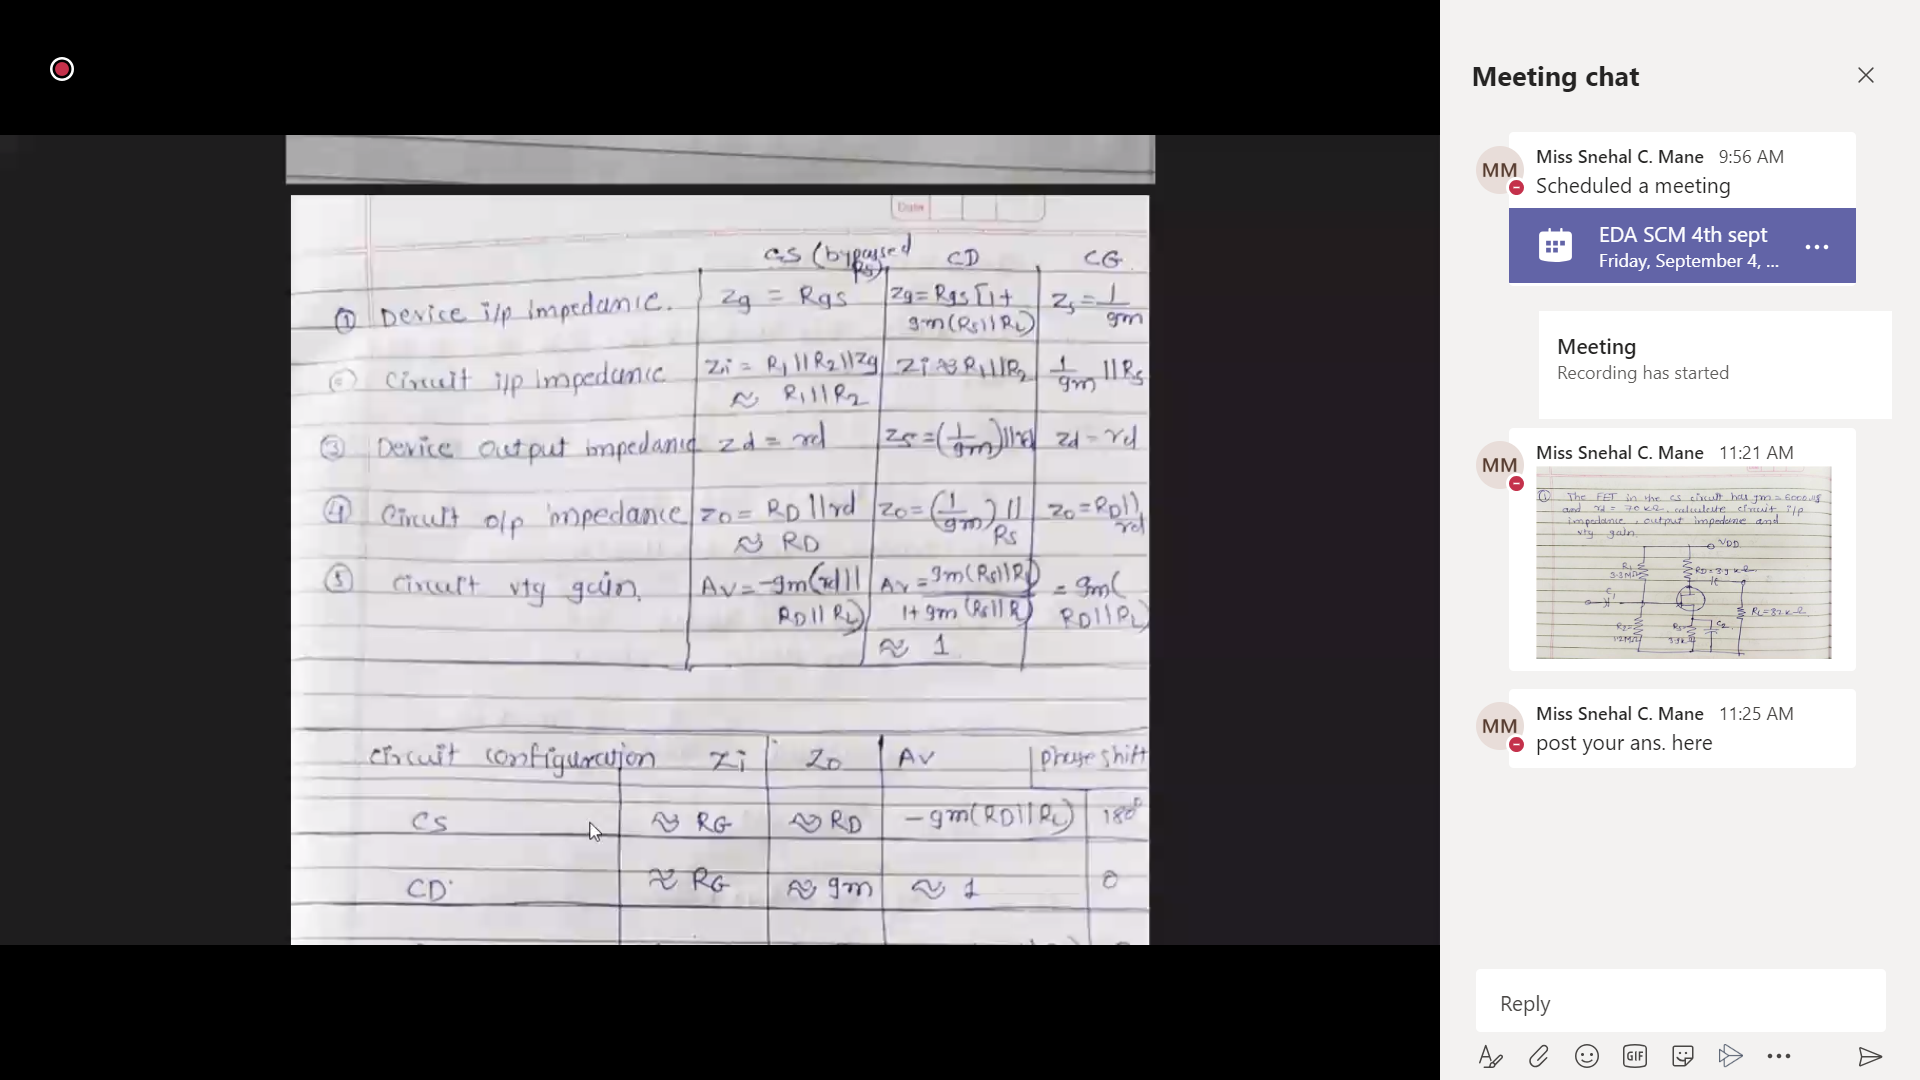 Date
CS (bypassed Rs) CD CG
① Device i/p impedance. Zg = Rgs Zg = Rgs [1+ gm(Rs||RL) Zs = 1/gm
② Circuit i/p impedance Zi = R1||R2||Zg Zi ≈ R1||R2 1/gm || Rs
≈ R1||R2
③ Device output impedance Zd = rd Zs = (1/gm)||rd Zd = rd
④ Circuit o/p impedance Zo = RD||rd Zo = (1/gm) || Rs Zo = RD|| rd
≈ RD
⑤ circuit vtg gain. Av = -gm(rd|| RD||RL) Av = gm(Rs||RL) / 1+gm(Rs||R) = gm( RD||RL)
≈ 1
circuit configuration Zi Zo Av phase shift
CS ≈ RG ≈ RD -gm(RD||RL) 180°
CD ≈ RG ≈ gm ≈ 1 0
Meeting chat
MM
Miss Snehal C. Mane 9:56 AM
Scheduled a meeting
EDA SCM 4th sept
Friday, September 4, ...
Meeting
Recording has started
MM
Miss Snehal C. Mane 11:21 AM
① The FET in the CS circuit has gm = 6000 μs
and rd = 70 kΩ. calculate circuit i/p
impedance, output impedance and
vtg gain.
VDD
R1
RD = 3.9 kΩ
C1
RL = 82 kΩ
R2
Rs
C2
MM
Miss Snehal C. Mane 11:25 AM
post your ans. here
Reply
GIF